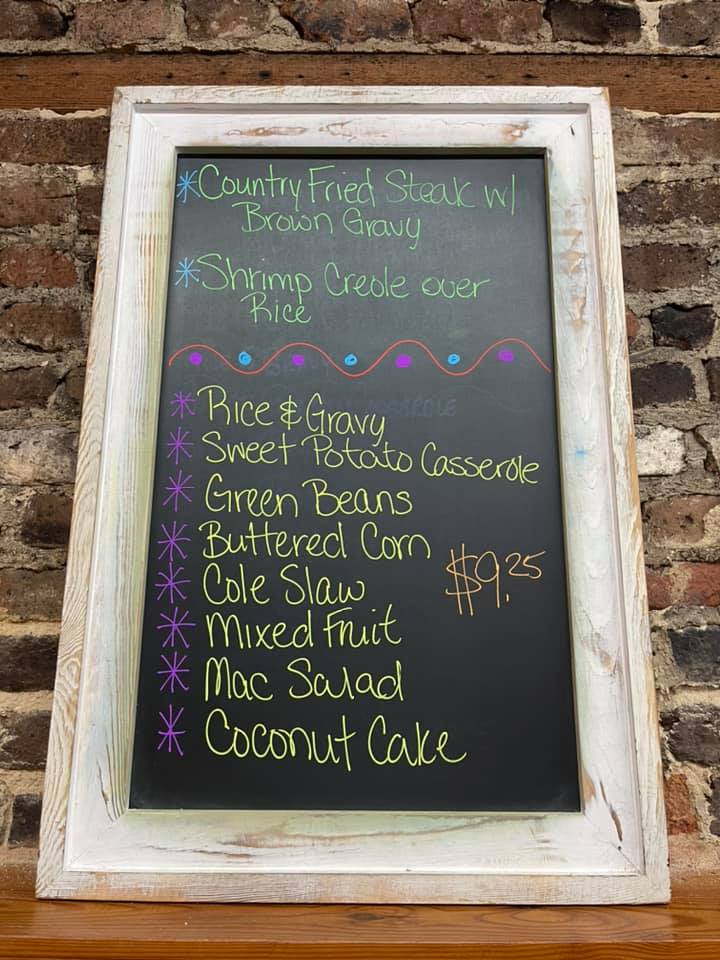 *Country Fried Steak w/
Brown Gravy
*Shrimp Creole over
Rice
* Rice & Gravy
* Sweet Potato Casserole
* Green Beans
* Buttered Corn
$9.25
* Cole Slaw
* Mixed Fruit
* Mac Salad
* Coconut Cake